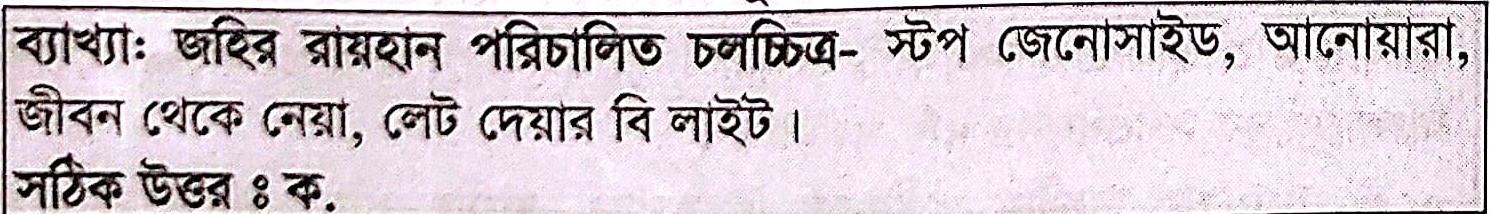 ব্যাখ্যাঃ জহির রায়হান পরিচালিত চলচ্চিত্র- স্টপ জেনোসাইড, আনোয়ারা,
জীবন থেকে নেয়া, লেট দেয়ার বি লাইট।
সঠিক উত্তর ঃ ক.